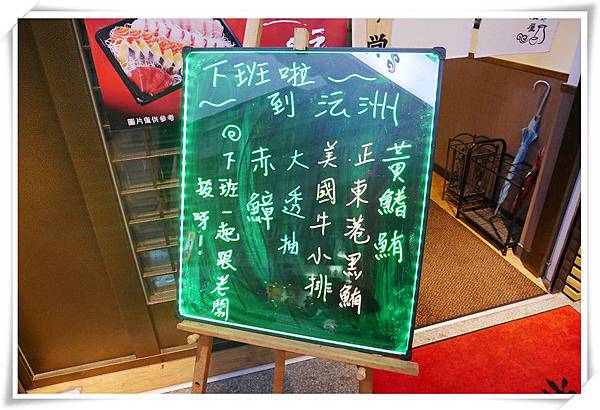 下班啦～
～到沄洲
黃鰭鮪
正東港黑鮪
美國牛小排
大透抽
赤鯮
@下班一起跟老闆
圖片僅供參考